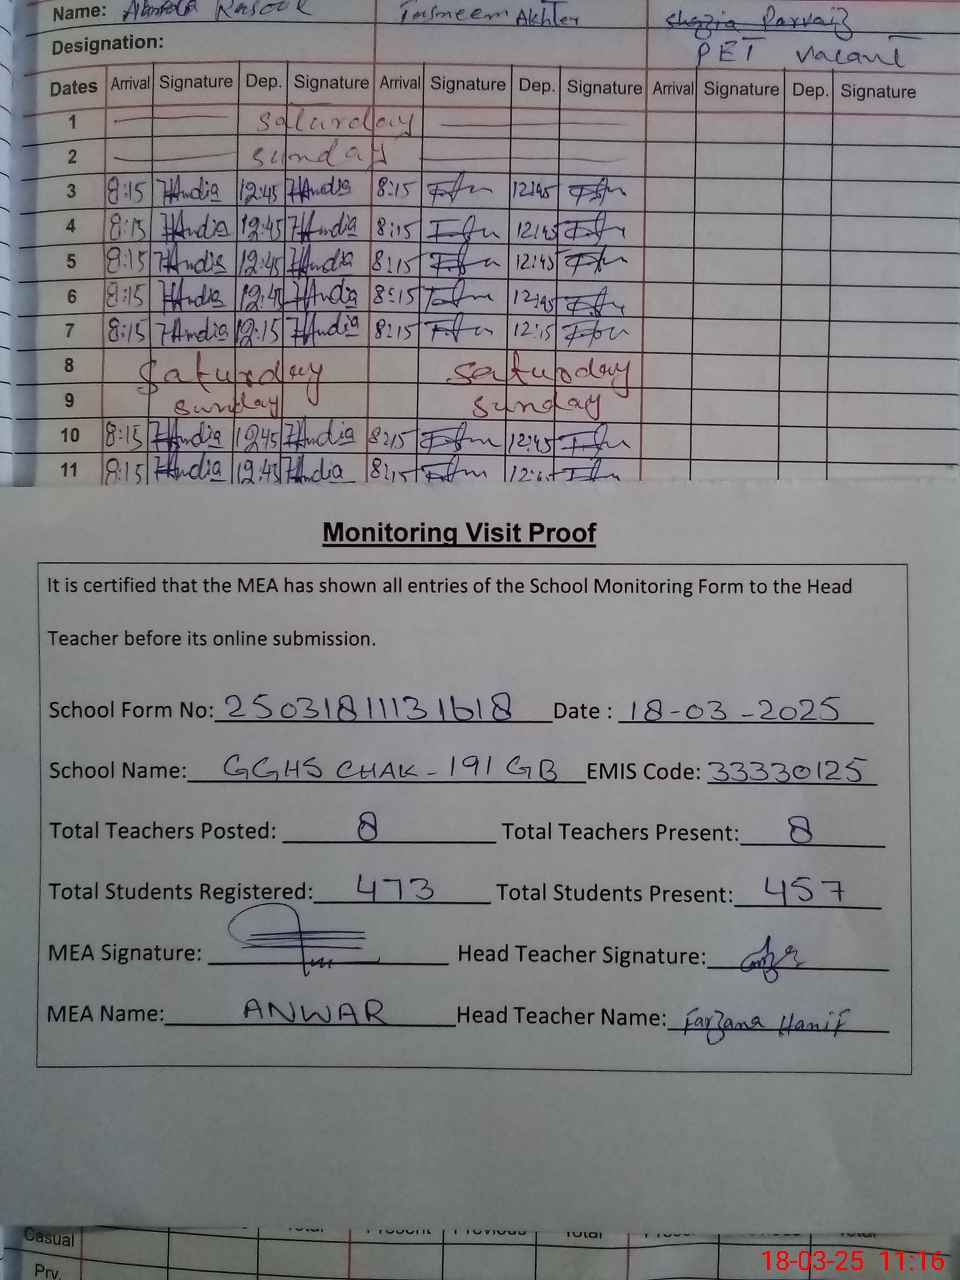 Name: Rasool Tasneem Akhter Shazia Parvaiz
Designation: PET vacant
Dates Arrival Signature Dep. Signature Arrival Signature Dep. Signature Arrival Signature Dep. Signature
1 Saturday
2 Sunday
3 8:15 12:45 8:15 12:45
4 8:15 12:45 8:15 12:45
5 8:15 12:45 8:15 12:45
6 8:15 12:45 8:15 12:45
7 8:15 12:15 8:15 12:15
8 Saturday Saturday
9 Sunday Sunday
10 8:15 12:45 8:15 12:45
11 8:15 12:45 8:15
Monitoring Visit Proof
It is certified that the MEA has shown all entries of the School Monitoring Form to the Head
Teacher before its online submission.
School Form No: 25031811131618 Date : 18-03-2025
School Name: GGHS CHAK-191 GB EMIS Code: 33330125
Total Teachers Posted: 8 Total Teachers Present: 8
Total Students Registered: 473 Total Students Present: 457
MEA Signature: Head Teacher Signature:
MEA Name: ANWAR Head Teacher Name: Farzana Hanif
Casual Total Present Previous Total Total
Prv.
18-03-25 11:16